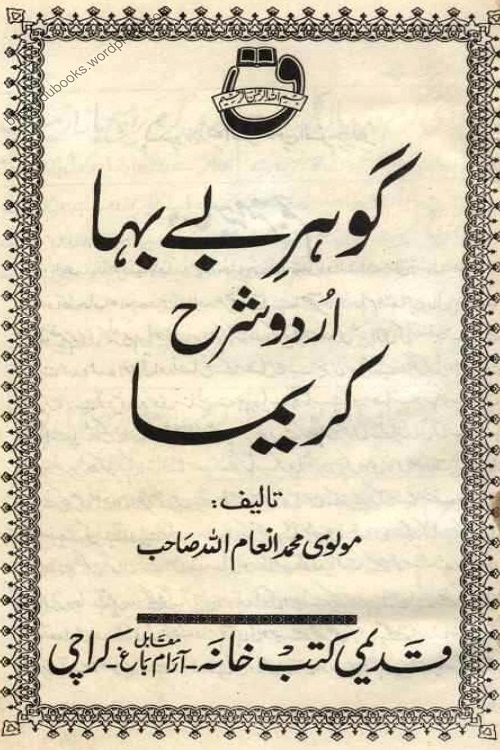 dubooks.wordpr
بسم اللہ الرحمن الرحیم
گوہرِ بے بہا
اُردو شرح
کریما
تالیف:
مولوی محمد انعام اللہ صاحب
قدیمی کتب خانہ - مقابل آرام باغ - کراچی